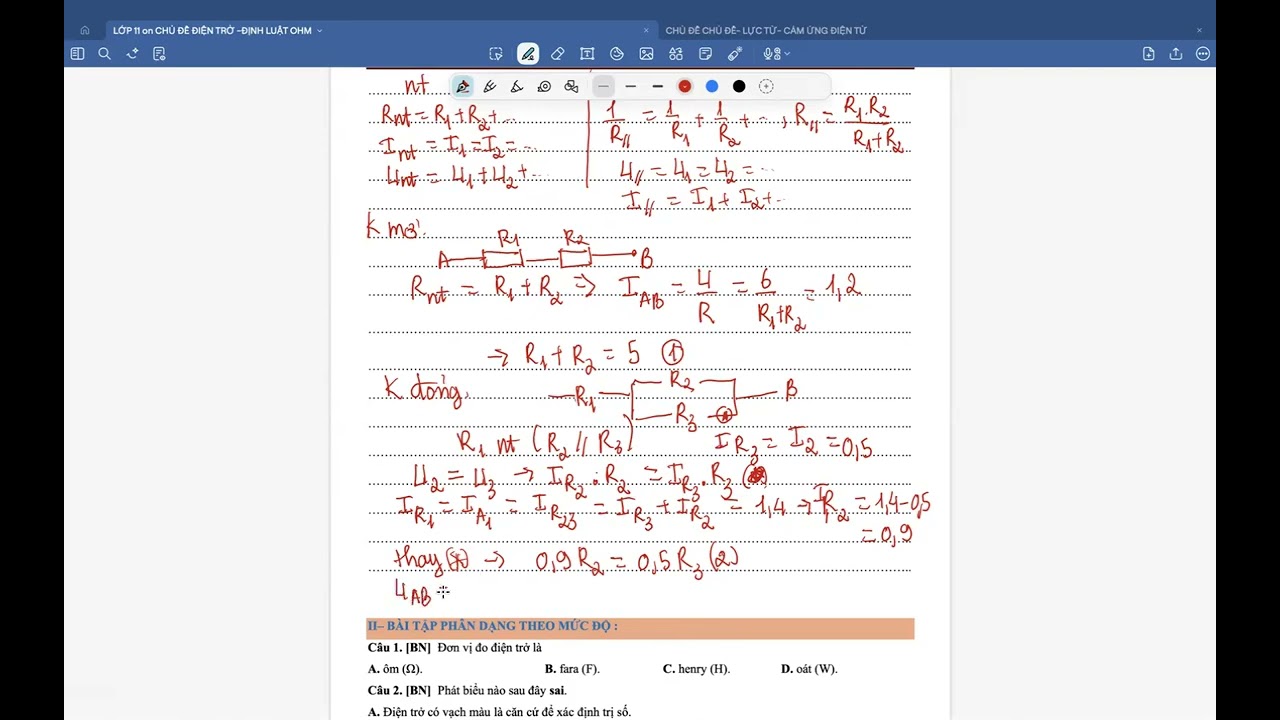 LỚP 11 on CHỦ ĐỀ ĐIỆN TRỞ -ĐỊNH LUẬT OHM
CHỦ ĐỀ CHỦ ĐỀ- LỰC TỪ- CẢM ỨNG ĐIỆN TỪ
nt
Rnt = R1 + R2 + ...
Int = I1 = I2 = ...
Unt = U1 + U2 + ...
1/R// = 1/R1 + 1/R2 + ..., R// = R1.R2/R1+R2
U// = U1 = U2 = ...
I// = I1 + I2 + ...
K mở:
A R1 R2 B
Rnt = R1 + R2 => IAB = U/R = 6/R1+R2 = 1,2
→ R1 + R2 = 5 ①
K đóng,
R1 R2 R3 A B
R1 nt (R2 // R3)
IR3 = I2 = 0,5
U2 = U3 → IR2 . R2 = IR3 . R3
IR1 = IA1 = IR23 = IR3 + IR2 = 1,4 → IR2 = 1,4-0,5
= 0,9
thay (*) → 0,9 R2 = 0,5 R3 (2)
UAB
II– BÀI TẬP PHÂN DẠNG THEO MỨC ĐỘ :
Câu 1. [BN] Đơn vị đo điện trở là
A. ôm (Ω). B. fara (F). C. henry (H). D. oát (W).
Câu 2. [BN] Phát biểu nào sau đây sai.
A. Điện trở có vạch màu là căn cứ để xác định trị số.